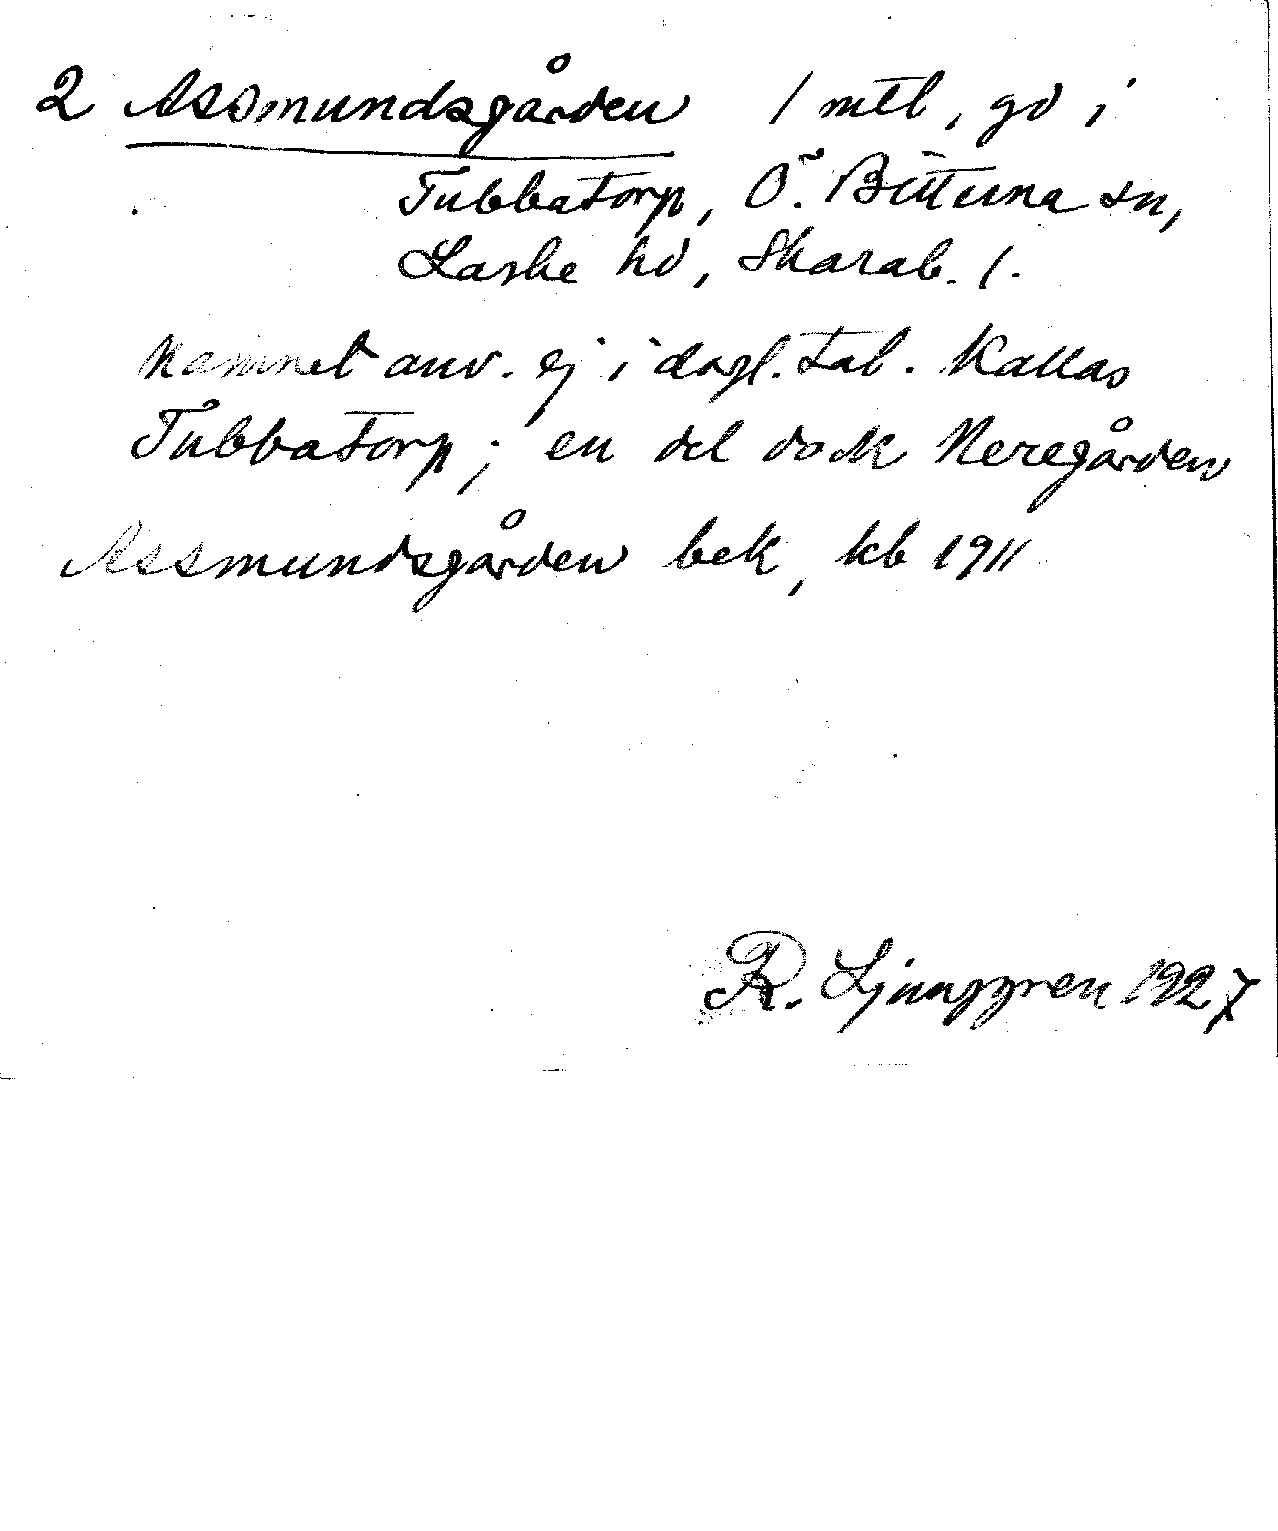 2 Assmundsgården 1 mtl, gd i
Tubbatorp, Ö. Bitterna sn,
Laske hd, Skarab. l.
Namnet anv. ej i dagl. tal. Kallas
Tubbatorp; en del dock Neregården
Assmundsgården bek, kb 1911
R. Ljunggren 1927